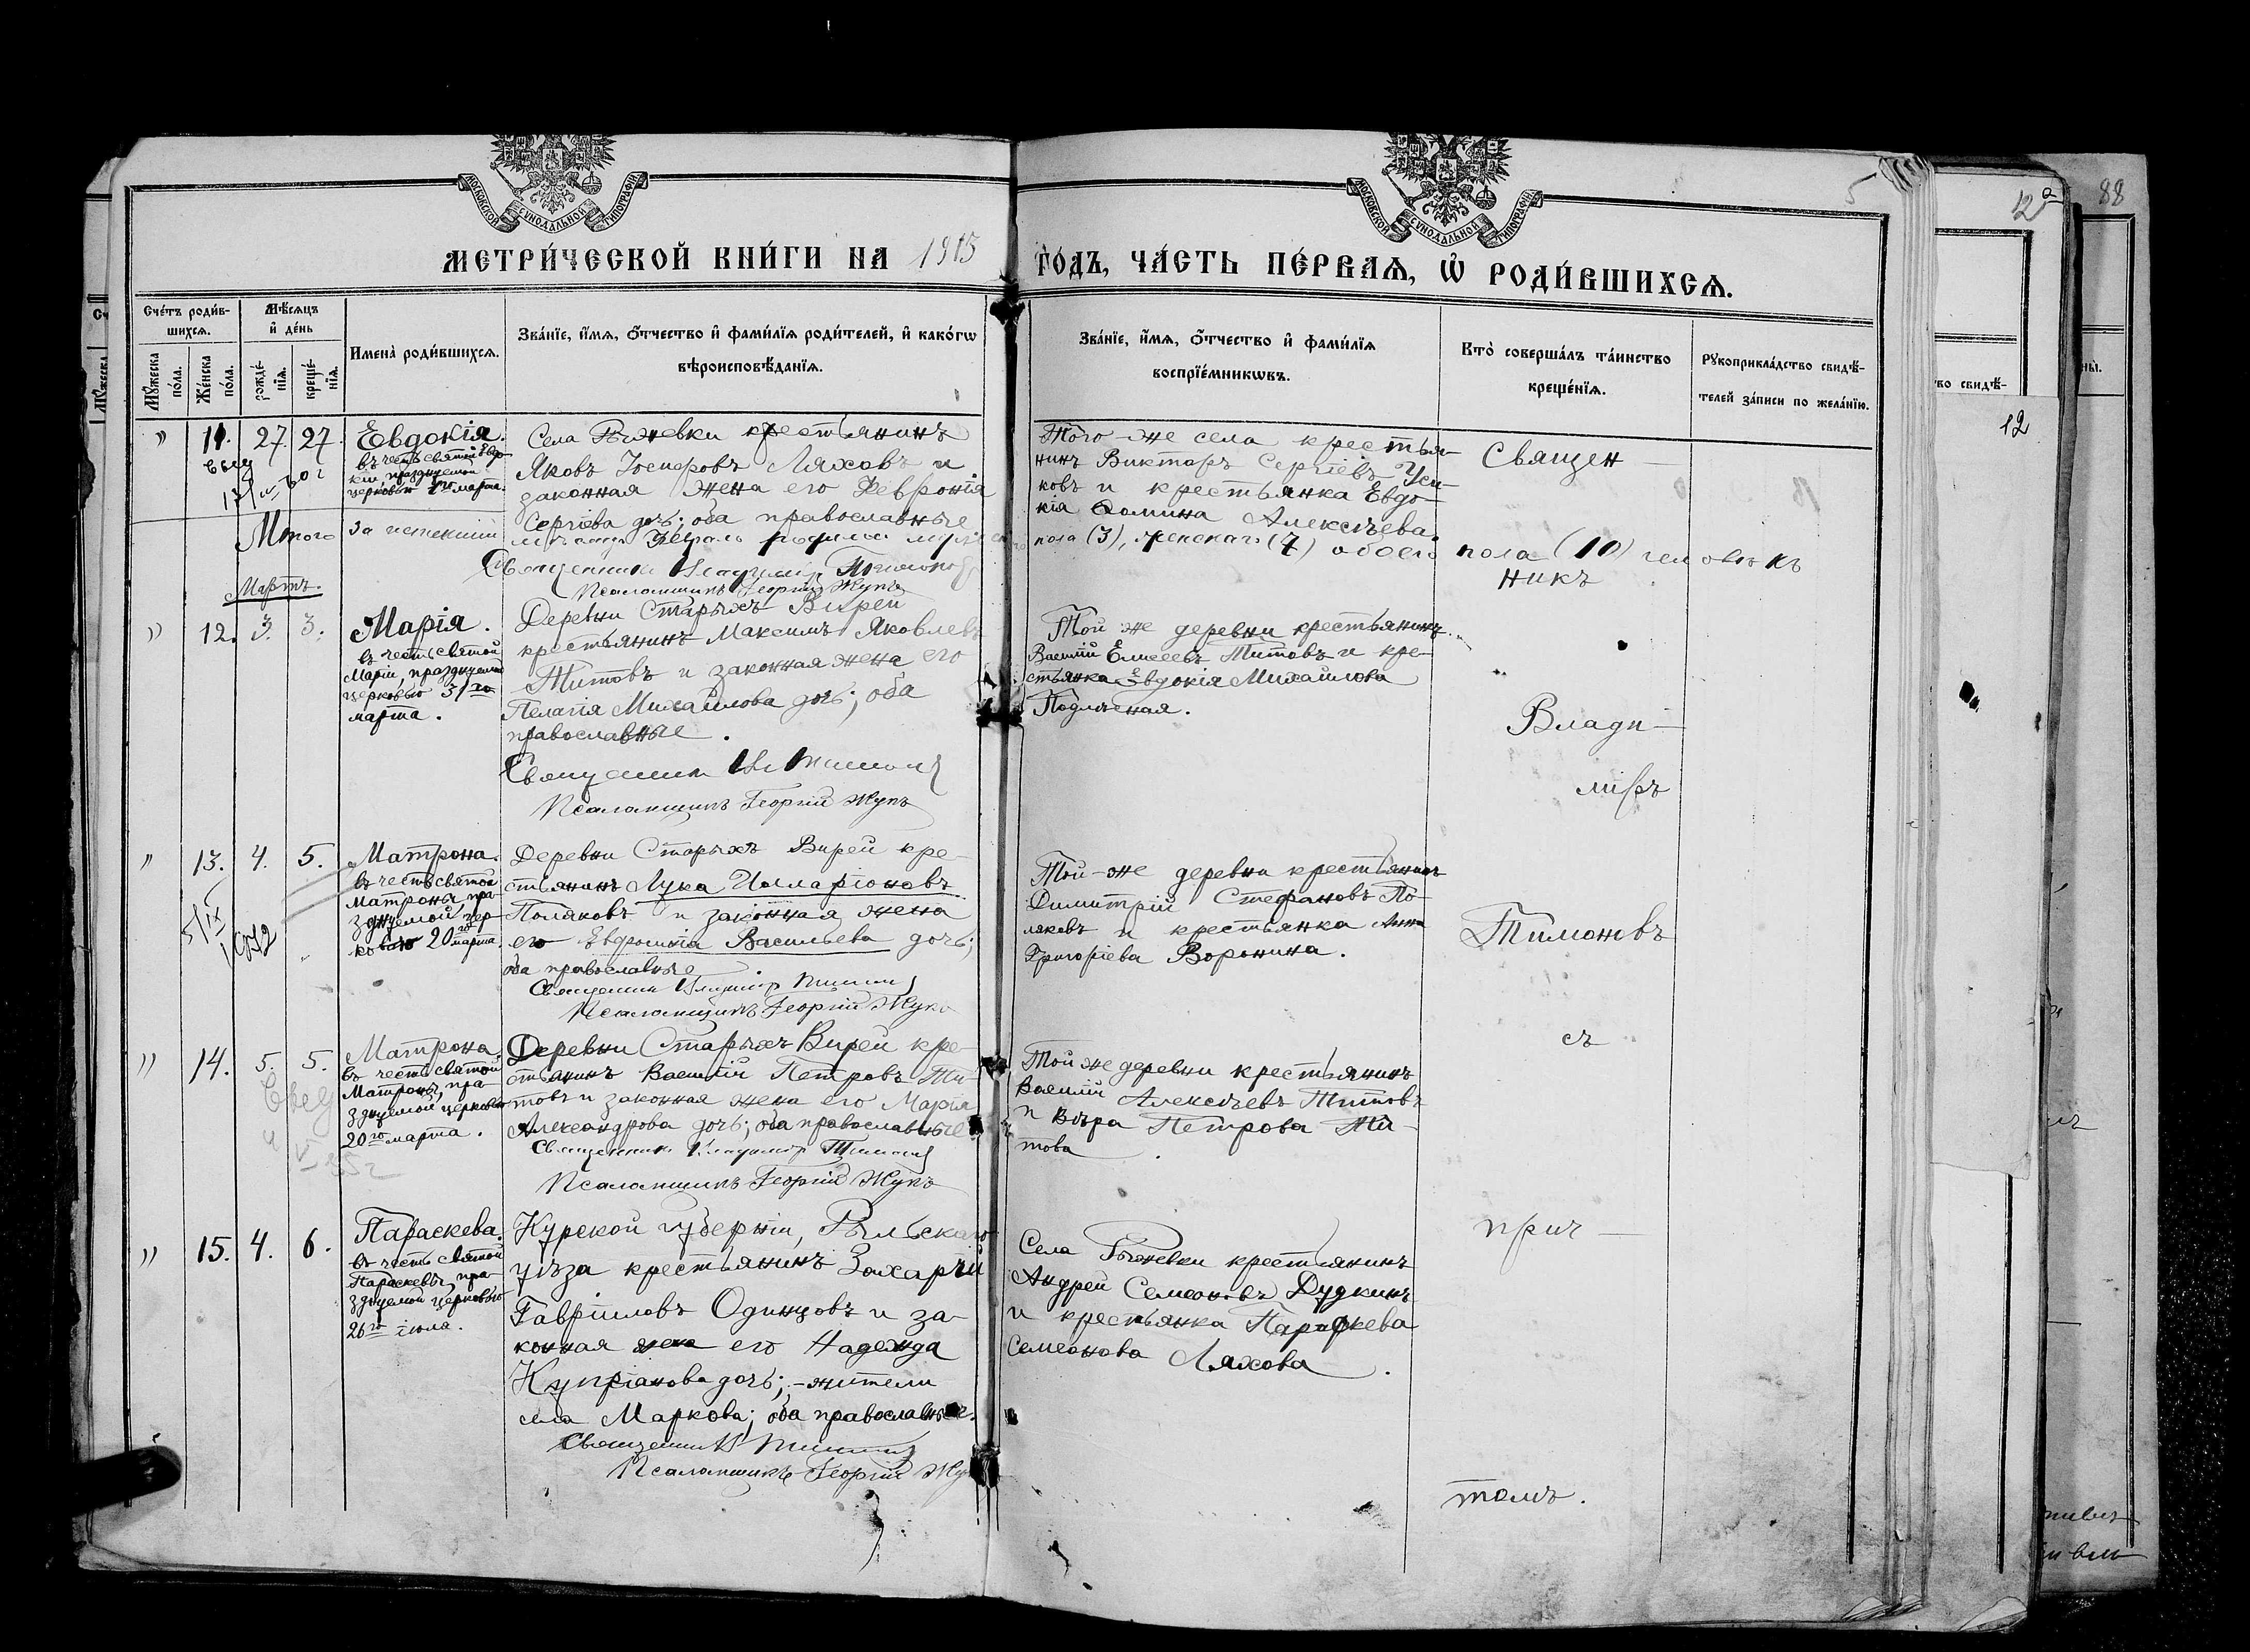 МОСКОВСКОЙ СѴНОДАЛЬНОЙ ТИПОГРАФІИ
МОСКОВСКОЙ СѴНОДАЛЬНОЙ ТИПОГРАФІИ
5
12
88
МЕТРИ́ЧЕСКОЙ КНИ́ГИ НА 1915 ГО́ДЪ, ЧА́СТЬ ПЕ́РВАѦ, Ѡ҆ РОДИ́ВШИХСѦ.
Сче́тъ роди́в-
шихсѧ.
Мѣ́сѧцъ
и҆ де́нь
Мꙋ́жеска
по́ла.
Же́нска
по́ла.
рожде́-
нїѧ.
креще́-
нїѧ.
Имена̀ роди́вшихсѧ.
Зва́нїе, и҆́мѧ, ѻ҆́тчество и҆ фами́лїѧ роди́телей, и҆ како́гѡ
вѣроисповѣ́данїѧ.
Зва́нїе, и҆́мѧ, ѻ҆́тчество и҆ фами́лїѧ
воспрїе́мникѡвъ.
Кто̀ соверша́лъ та́инство
креще́нїѧ.
Рꙋкоприкла́дство свидѣ́-
телей за́писи по жела́нїю.
12
" 11. 27. 27.
Евдокія.
въ честь святой Евдо-
кіи, празднуемой
церковью 1го марта.
Села Рыжевки крестьянинъ
Яковъ Іосифовъ Ляховъ и
законная жена его Феѵронія
Сергіева дочь; оба православные
Того-же села крестья-
нинъ Викторъ Сергіевъ Уси-
ковъ и крестьянка Евдо-
кія Фомина Алексѣева.
Священ-
Итого за истекшій
пола (3), женскаго (7) обоего пола (10) человѣкъ
Священникъ Владиміръ Тимоновъ
Псаломщикъ Георгій Жукъ
никъ
Мартъ.
" 12. 3. 3.
Марія.
въ честь святой
Маріи, празднуемой
церковью 31го
марта.
Деревни Старыхъ Вирей
крестьянинъ Максимъ Яковлевъ
Титовъ и законная жена его
Пелагія Михайлова дочь; оба
православные.
Священникъ Вл Тимоновъ
Псаломщикъ Георгій Жукъ
Той же деревни крестьянинъ
Василій Елисеевъ Титовъ и кре-
стьянка Евдокія Михайлова
Влади-
міръ
" 13. 4. 5.
Матрона.
въ честь святой
Матроны, пра-
зднуемой цер-
ковью 20го марта.
Деревни Старыхъ Вирей кре-
стьянинъ Лука Илларіоновъ
Поляковъ и законная жена
его Евфросинія Васильева дочь;
оба православные.
Священникъ Владиміръ Тимоновъ
Псаломщикъ Георгій Жукъ
Той-же деревни крестьянинъ
Димитрій Стефановъ По-
ляковъ и крестьянка Анна
Григоріева Воронина.
Тимоновъ
съ
" 14. 5. 5.
Матрона.
въ честь святой
Матроны, пра-
зднуемой церковью
20го марта.
Деревни Старыхъ Вирей кре-
стьянинъ Василій Петровъ Ти-
товъ и законная жена его Марія
Александрова дочь; оба православные
Священникъ Владиміръ Тимоновъ
Псаломщикъ Георгій Жукъ
Той же деревни крестьянинъ
Василій Алексѣевъ Титовъ
и Вѣра Петрова Ти-
това
прич-
" 15. 4. 6.
Параскева.
въ честь святой
Параскевы, пра-
зднуемой церковью
26го іюля.
Курской губерніи, Рыльскаго
уѣзда крестьянинъ Захарій
Гавріиловъ Одинцовъ и за-
конная жена его Надежда
Кипріанова дочь; - жители
села Маркова; оба православные.
Священникъ В Тимоновъ
Псаломщикъ Георгій Жукъ
Села Рыжевки крестьянинъ
Андрей Семеоновъ Дудкинъ
и крестьянка Параскева
Семеонова Ляхова.
томъ.